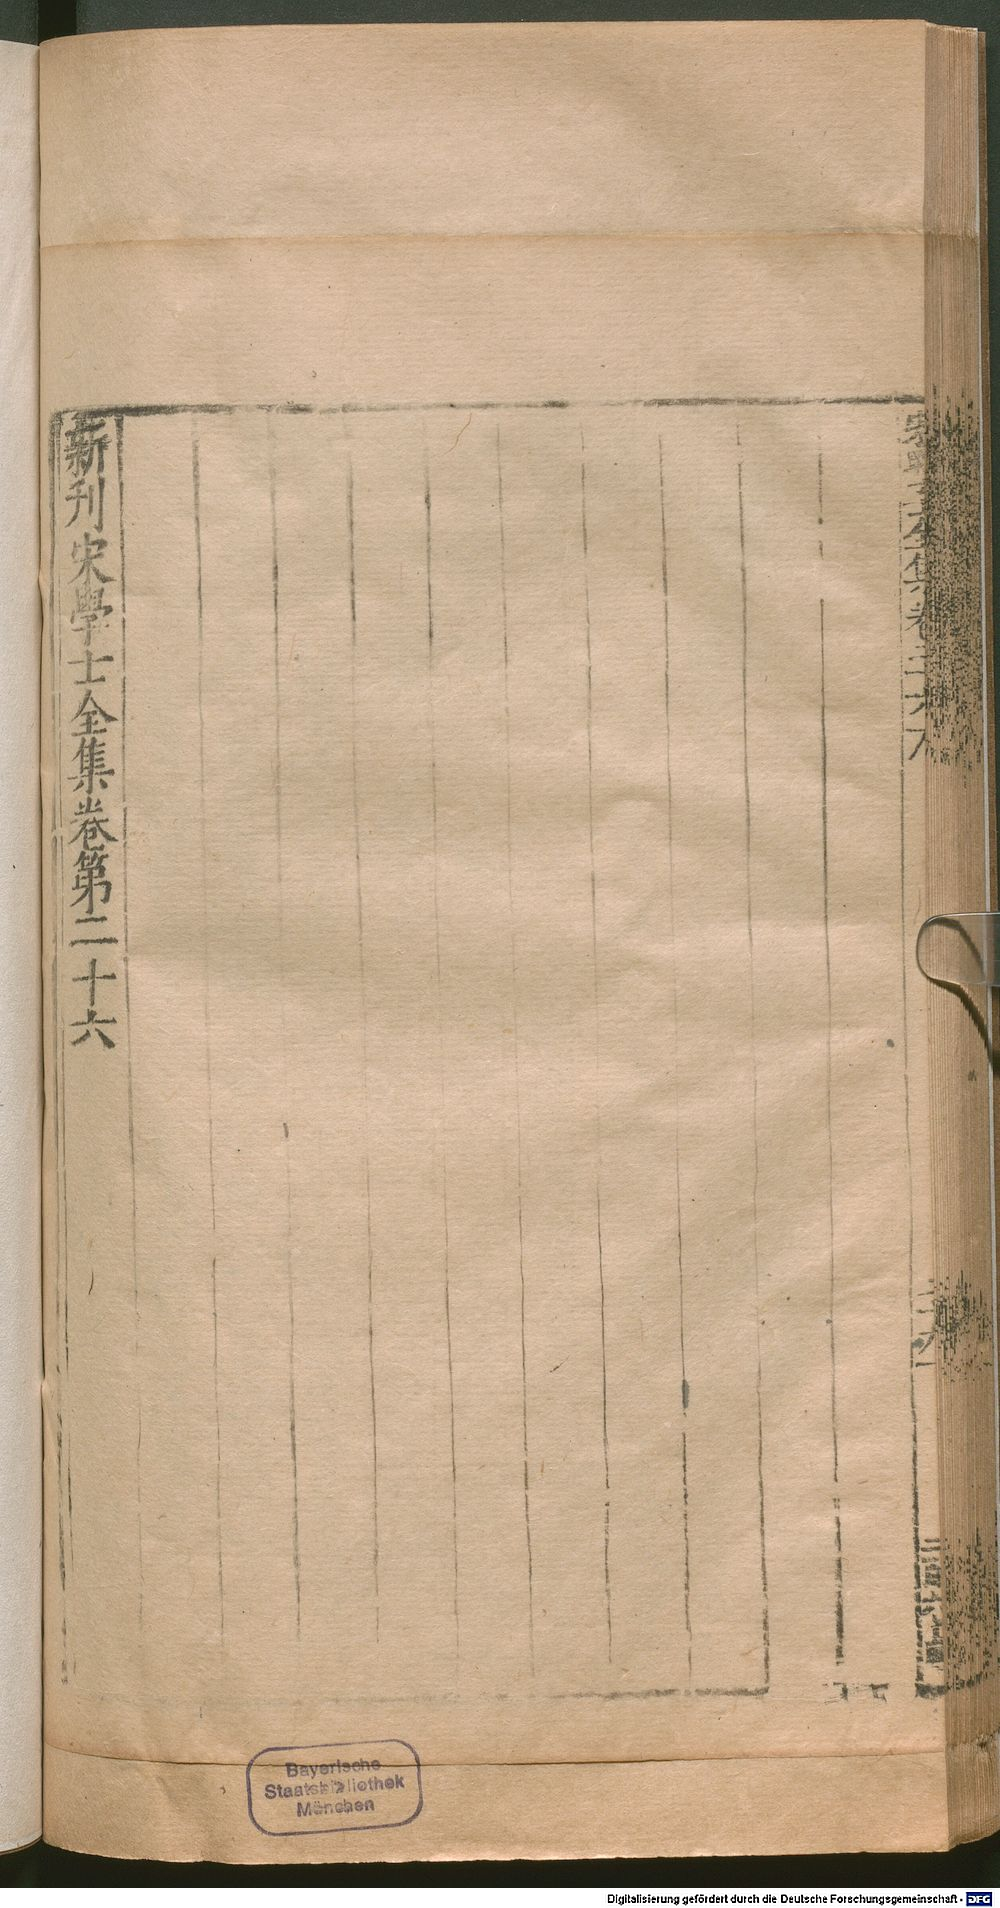 宋學士全集卷二十六
新刊宋學士全集卷第二十六
Bayerische
Staatsbibliothek
München
Digitalisierung gefördert durch die Deutsche Forschungsgemeinschaft - DFG